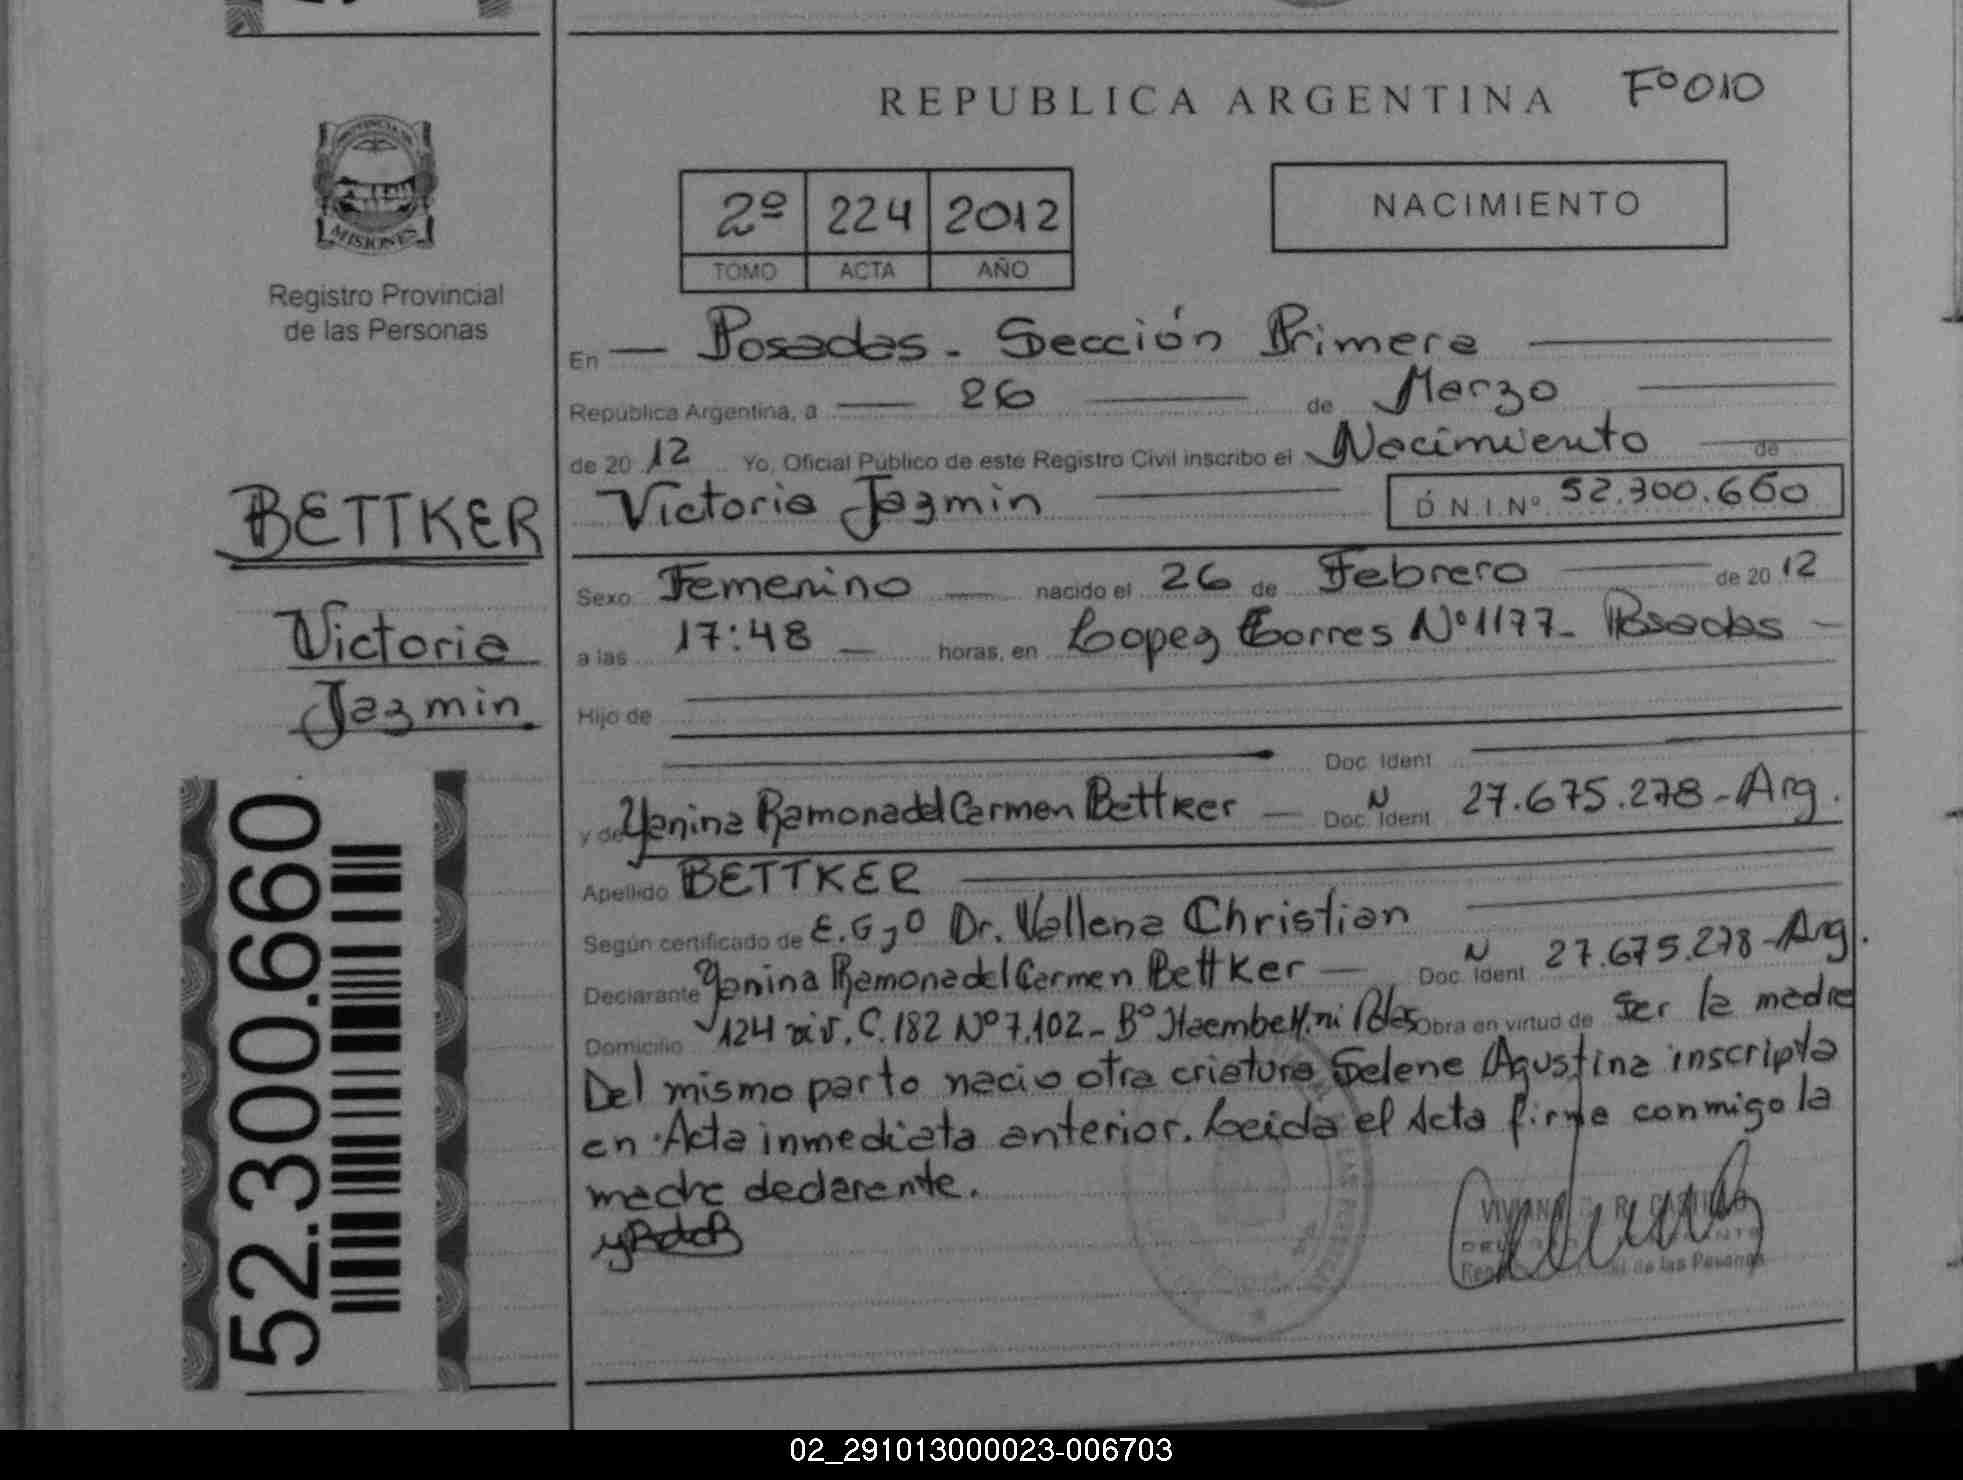 REPUBLICA ARGENTINA Fº010
MISIONES
Registro Provincial
de las Personas
2º 224 2012
TOMO ACTA AÑO
NACIMIENTO
En Posadas. Sección Primera
República Argentina, a 26 de Marzo
de 20 12 Yo, Oficial Público de este Registro Civil inscribo el Nacimiento de
Victoria Jazmin D.N.I.Nº 52.300.660
BETTKER
Victoria
Jazmin
Sexo Femenino nacido el 26 de Febrero de 20 12
a las 17:48 horas, en Lopez Torres Nº1177- Posadas
Hijo de
Doc. Ident
y de Yanina Ramona del Carmen Bettker Doc. Ident N 27.675.278-Arg.
Apellido BETTKER
Según certificado de E.G y O Dr. Vallena Christian
Declarante Yanina Ramona del Carmen Bettker Doc. Ident N 27.675.278-Arg.
Domicilio 124 viv. C.182 Nº7.102- Bº Itaembé Mini Pdas Obra en virtud de Ser la madre
Del mismo parto nacio otra criatura Selene Agustina inscripta
en Acta inmediata anterior. Leida el Acta firma conmigo la
madre declarante.
de las Personas
52.300.660
02_291013000023-006703